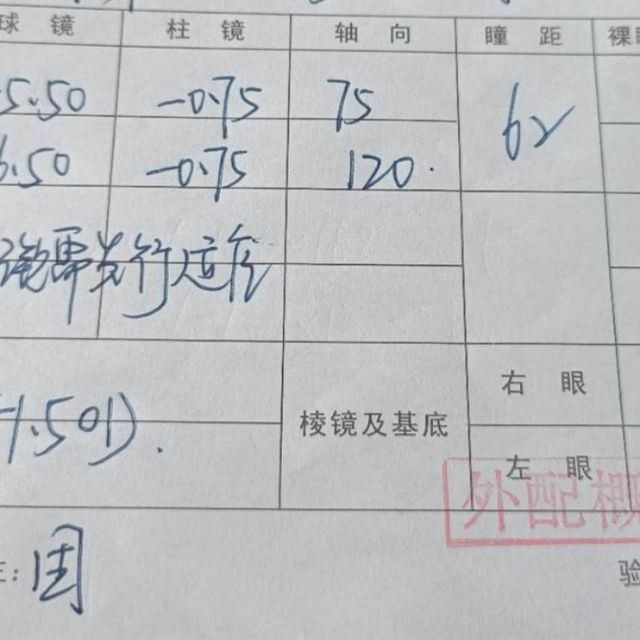 球 镜 柱 镜 轴 向 瞳 距 裸眼
5.50 -0.75 75 62
6.50 -0.75 120.
需先行适应
(-1.501).
棱镜及基底 右 眼
左 眼
外配概
验